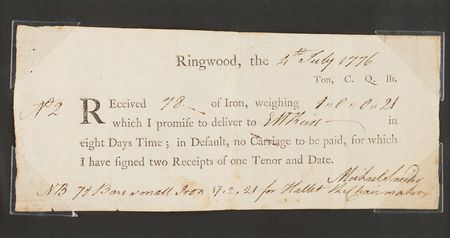 Ringwood, the 4th July 1776
Ton, C. Q. lb.
No 2 Received 78 of Iron, weighing 1 " 0 " 0 " 21
which I promise to deliver to in
eight Days Time; in Default, no Carriage to be paid, for which
I have signed two Receipts of one Tenor and Date.
Michael
NB 79 Bars small Iron 17.2.21 for Hallet the Chain maker